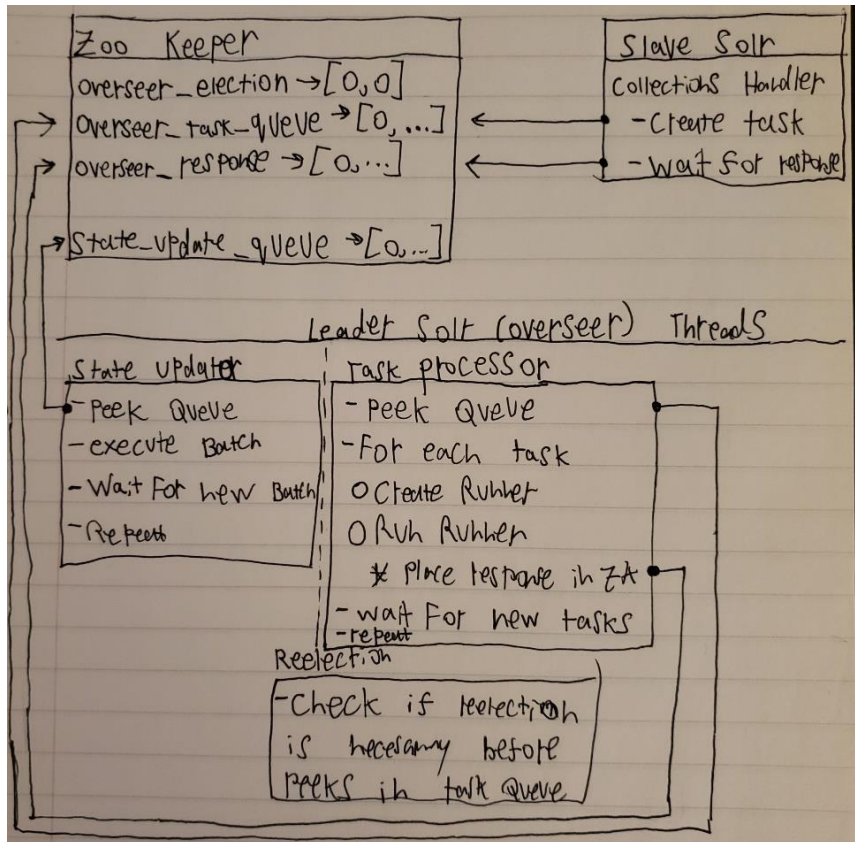 Zoo Keeper
overseer_election →[0,0]
Overseer_task_queue →[0,...]
overseer_response →[0,...]
State_update_queue →[0,...]
Slave Solr
Collections Handler
-Create task
-Wait for response
Leader Solr (overseer) Threads
State updater
-Peek Queue
-execute Batch
-Wait For new Batch
-Repeat
Task processor
-Peek Queue
-For each task
O Create Runner
O Run Runner
* Place response in ZK
-wait For new tasks
-repeat
Reelection
-Check if reelection
is necesarry before
peeks in task Queue